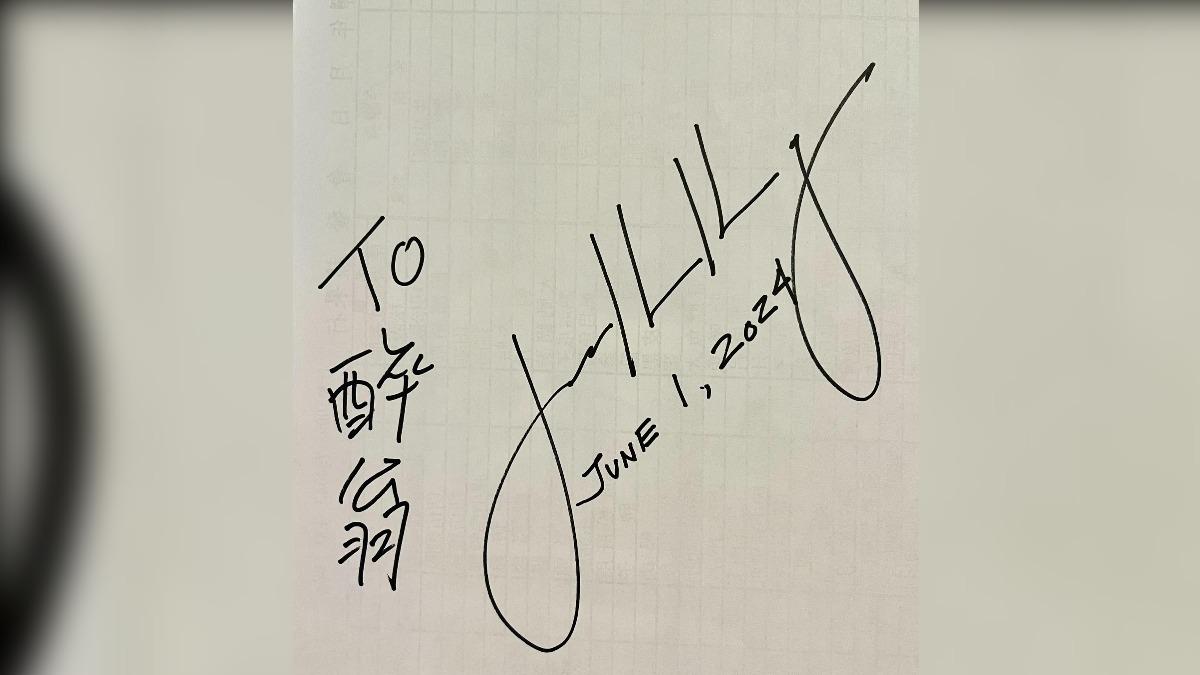 TO
醉
翁
JUNE 1, 2024